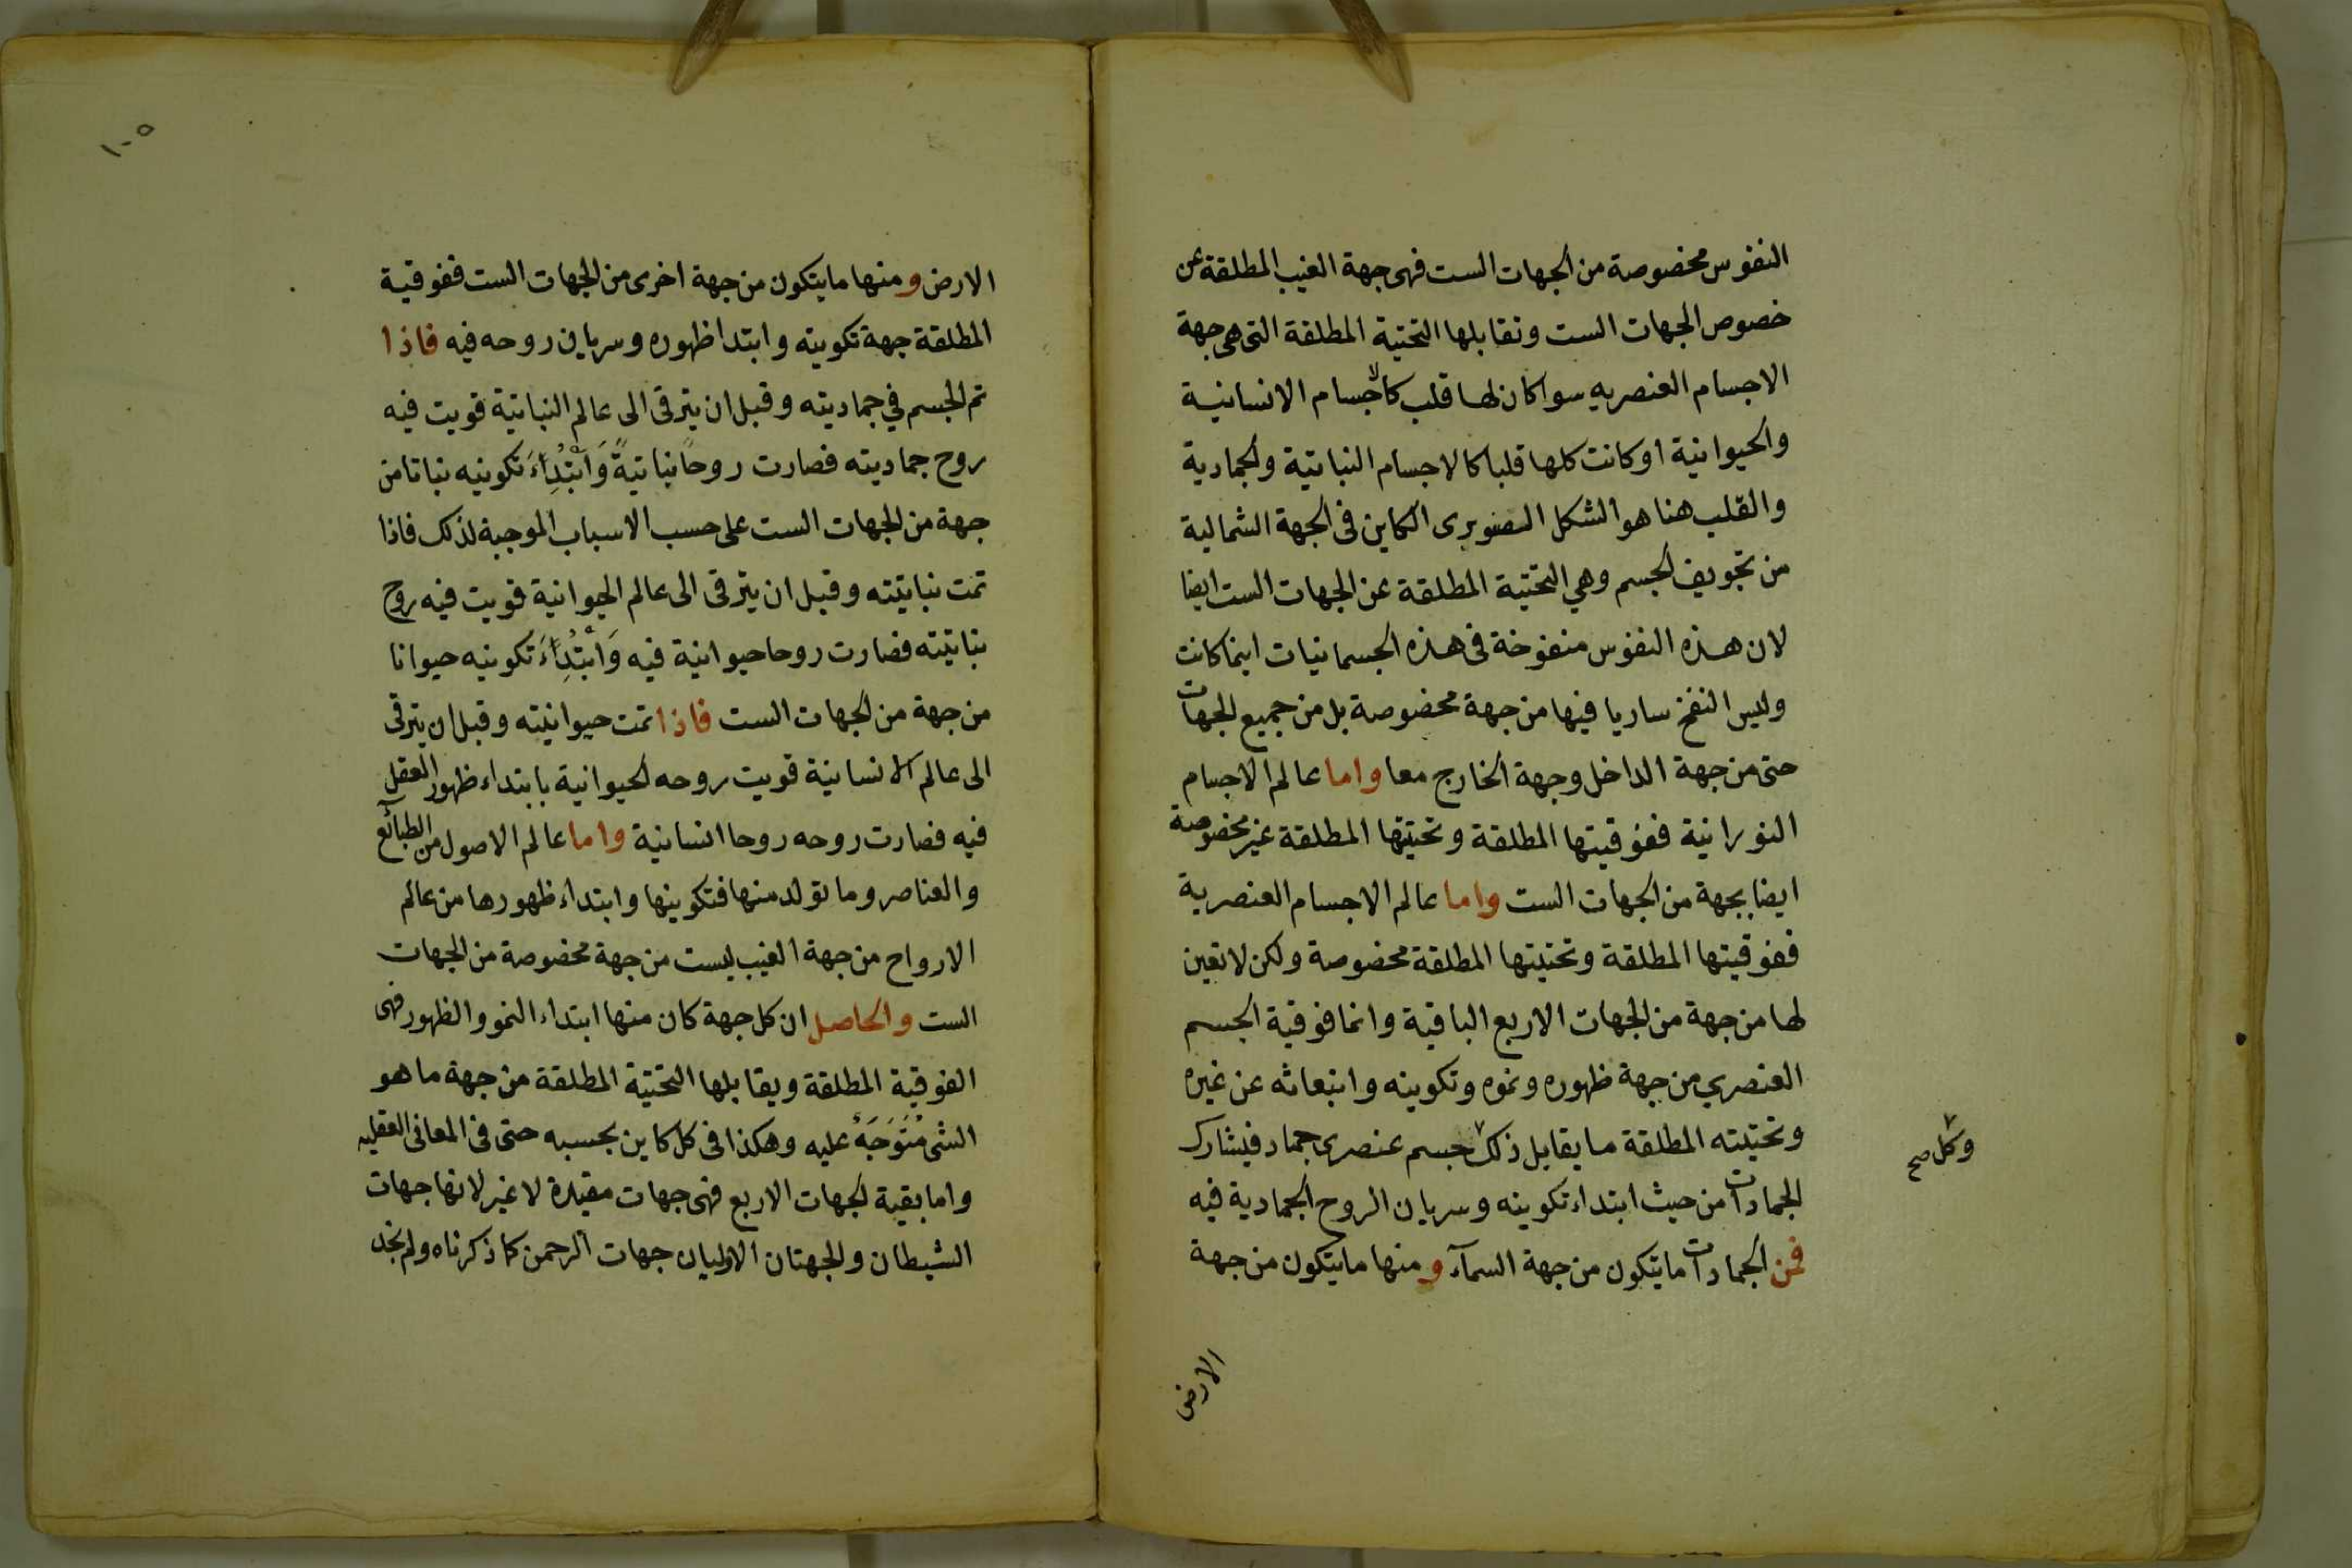 النفوس مخصوصة من الجهات الست فهى جهة الغيب المطلقة عن
خصوص الجهات الست وتقابلها التحتية المطلقة التى هى جهة
الاجسام العنصريه سوا كان لها قلب كالاجسام الانسانية
والحيوانية او كانت كلها قلبا كالاجسام النباتية والجمادية
والقلب هنا هو الشكل الصنوبرى الكاين فى الجهة الشمالية
من تجويف الجسم وهي التحتية المطلقة عن الجهات الست ايضا
لان هذه النفوس منفوخة فى هذه الجسمانيات اينما كانت
وليس النفخ ساريا فيها من جهة مخصوصة بل من جميع الجهات
حتى من جهة الداخل وجهة الخارج معا واما عالم الاجسام
النورانية ففوقيتها المطلقة وتحتيتها المطلقة غير مخصوصة
ايضا بجهة من الجهات الست واما عالم الاجسام العنصرية
ففوقيتها المطلقة وتحتيتها المطلقة مخصوصة ولكن لا تعين
لها من جهة من الجهات الاربع الباقية وانما فوقية الجسم
العنصري من جهة ظهوره ونموه وتكوينه وانبعاثه عن غيره
وتحتيته المطلقة ما يقابل ذلك جسم عنصرى جماد فيشارك
وكل صح
الجمادات من حيث ابتداء تكوينه وسريان الروح الجمادية فيه
فمن الجمادات ما يتكون من جهة السمآء ومنها ما يتكون من جهة
الارض
١٠٥
الارض ومنها ما يتكون من جهة اخرى من الجهات الست ففوقية
المطلقة جهة تكوينه وابتدا ظهوره وسريان روحه فيه فاذا
تم الجسم في جماديته وقبل ان يترقى الى عالم النباتية قويت فيه
روح جماديته فصارت روحًا نباتيةً وَابْتُدِاءَ تكوينه نباتا من
جهة من الجهات الست على حسب الاسباب الموجبة لذلك فاذا
تمت نباتيته وقبل ان يترقى الى عالم الحيوانية قويت فيه روح
نباتيته فصارت روحا حيوانية فيه وَابْتُدِاءَ تكوينه حيوانا
من جهة من الجهات الست فاذا تمت حيوانيته وقبل ان يترقى
الى عالم الانسانية قويت روحه الحيوانية بابتداء ظهور العقل
فيه فصارت روحه روحا انسانية واما عالم الاصول من الطبآئع
والعناصر وما تولد منها فتكوينها وابتداء ظهورها من عالم
الارواح من جهة الغيب ليست من جهة مخصوصة من الجهات
الست والحاصل ان كل جهة كان منها ابتداء النمو والظهور فهى
الفوقية المطلقة ويقابلها التحتية المطلقة من جهة ما هو
الشى مُتَوَجَهٌ عليه وهكذا فى كل كاين بحسبه حتى فى المعانى العقليه
واما بقية الجهات الاربع فهى جهات مقيدة لا غير لانها جهات
الشيطان والجهتان الاوليان جهات الرحمن كما ذكرناه ولم نجد